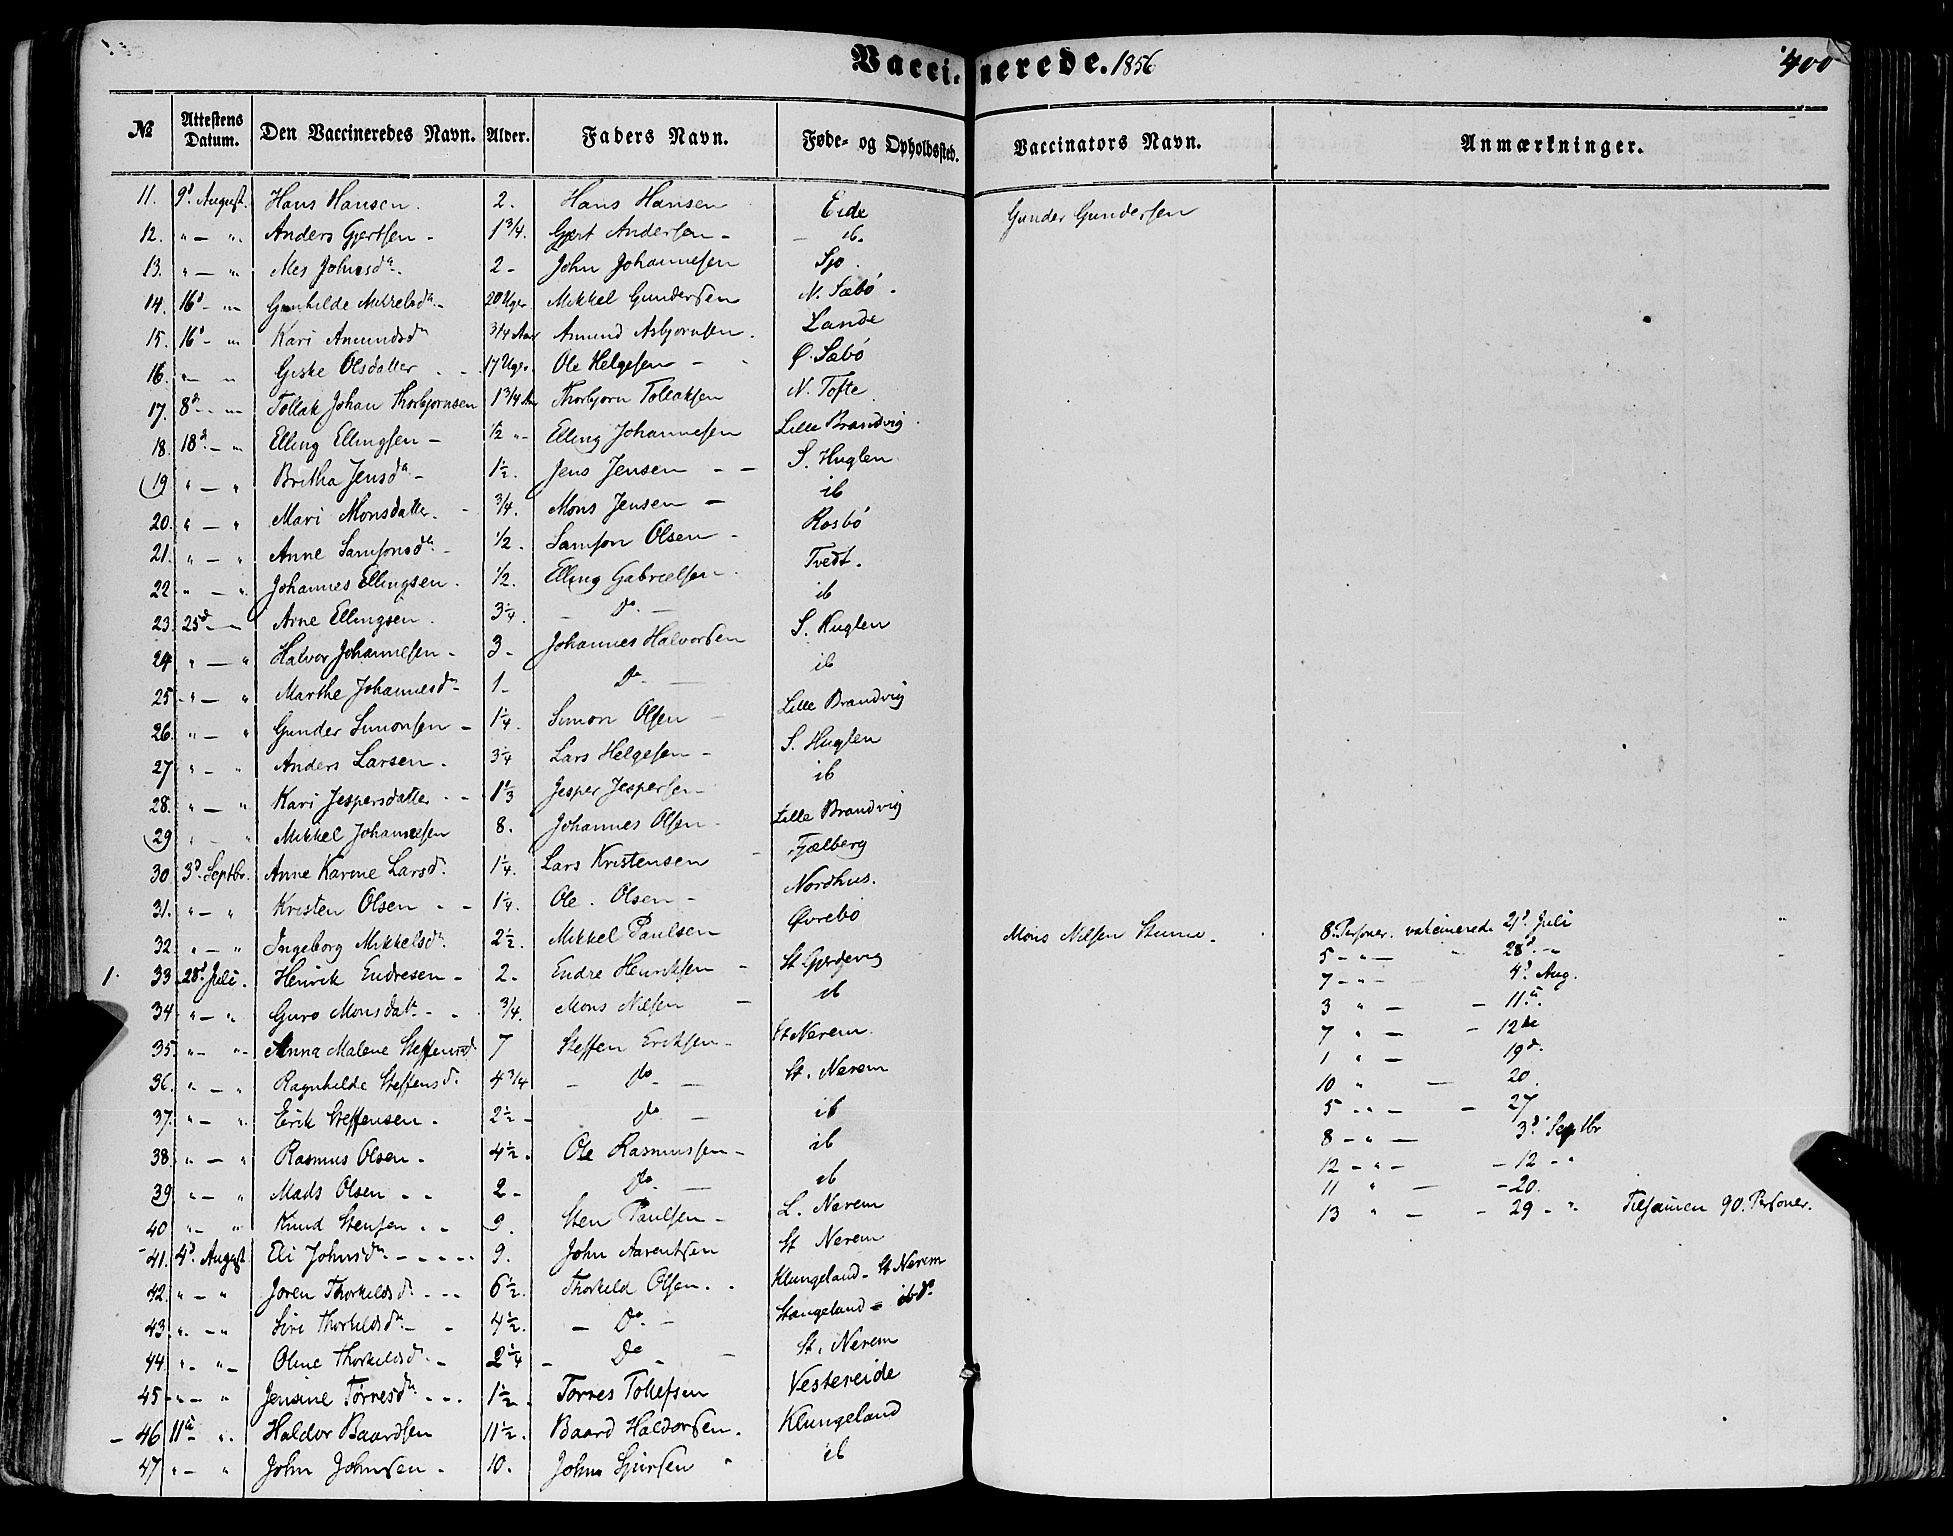 Vaccinerede. 1856
400
№ Attestens Datum. Den Vaccineredes Navn. Alder. Faders Navn. Føde- og Opholdssted. Vaccinators Navn. Anmærkninger.
11. 9d August. Hans Hansen. 2. Hans Hansen Eide Gunder Gundersen
12. " — " Anders Gjertsen - 1 3/4. Gjert Andersen - — ib.
13. " — " Johnsda. 2 - John Johannesen Sjo.
14. 16d - " Gunhilde Mikkelsda - 20 Uger Mikkel Gundersen N. Sæbö.
15. 16d - " Kari Amundsdr 3/4 Aar Amund Asbjornsen. Lande
16. " — " Giske Olsdatter - - 17 Uger. Ole Helgesen - - Ö. Sæbö
17. 8d - " Tollak Johan Thorbjornsen 1 3/4 Aar Thorbjorn Tollaksen N. Tofte
18. 18d - " Elling Ellingsen - 1/2 " - Elling Johannesen Lille Brandvig
19 " — " Britha Jensda - 1 1/2. Jens Jensen - - S. Huglen
20. " — " Mari Monsdatter. - 3/4. Mons Jensen - ib
21. " — " Anne Samsonsda - 1/2. Samson Olsen - Rosbö
22 " — " Johannes Ellingsen. 1/2. Elling Gabrielsen - Tvedt.
23. 25d - " Arne Ellingsen. 3 1/4. — Do. — ib
24 " — " Halvor Johannesen - 3 - Johannes Halvorsen S. Huglen
25 - " — " Marthe Johannesda - 1 - Do. — ib
26. " — " Gunder Simonsen - 1 1/4. Simon Olsen - Lille Brandvig
27 " — " Anders Larsen. 3 1/4 Lars Helgesen - S. Huglen
28. " — " Kari Jespersdatter - - 1 1/3 Jesper Jespersen ib
29 " - " Mikkel Johannesen 8. Johannes Olsen - Lille Brandvig
30 3d Septbr. Anne Karine Larsd. 1 1/4. Lars Kristensen - Fjelberg
31. " — " Kristen Olsen - - 1 1/4. Ole. Olsen - Nordhus.
32. " — " Ingeborg Mikkelsda. 2 1/2. Mikkel Paulsen Øvrebö Mons Nilsen 8. Personer. vakcinerede 21d Juli
5 - " — " 28d - "
1. 33. 28d Juli. Henrik Endresen - 2 - Endre Henriksen - St Gjerdevig 7 - " - 4d Aug.
34 " — " Guro Monsdatr - - 3/4. Mons Nilsen — ib 3 " — - 11te.
35. " - " - Anna Malene Steffensd. 7 Steffen Eriksen - St Nerem. 7 " — - 12te
36. " — " Ragnhilde Steffensd. 4 3/4 — Do. — St. Nerem 1 " — 19d.
37. " - " Erik Steffensen. 2 1/2 - Do — ib 10 " — 20.
38. " — " Rasmus Olsen - 4 1/2. Ole Rasmussen - ib 5 - " — - 27
39 " - " Mads Olsen - - 2 - Do. — ib 8 - " — 3d Septbr
40 " - " Knud Stensen - - 9. Sten Paulsen - L. Nerem 12 - " — - 12 - "
11 " — - 20.
13 " — - 29 - " Tilsamen 90. Personer.
- 41. 4d August Eli Johnsda - - - - 9. John Aarentsen St Nerem
42. " - " Joren Thorkildsd. - - - 6 1/2. Thorkild Olsen. - Klungeland - St Nerem
43. " - - " Siri Thorkildsda - - 4 1/2. — Do. — Stangeland = ibd.
44. " - " - Oline Thorkildsd. - 2 1/4 — Do - — St. Nerem
45 - " - " Jensine Torresda - - - 1 1/2. Torres Tollefsen Vestereide
- 46 11te " . Haldor Baardsen 11 1/2. Baard Haldorsen. Klungeland
47 " - " John Johnsen - 10. John Sjursen " ib